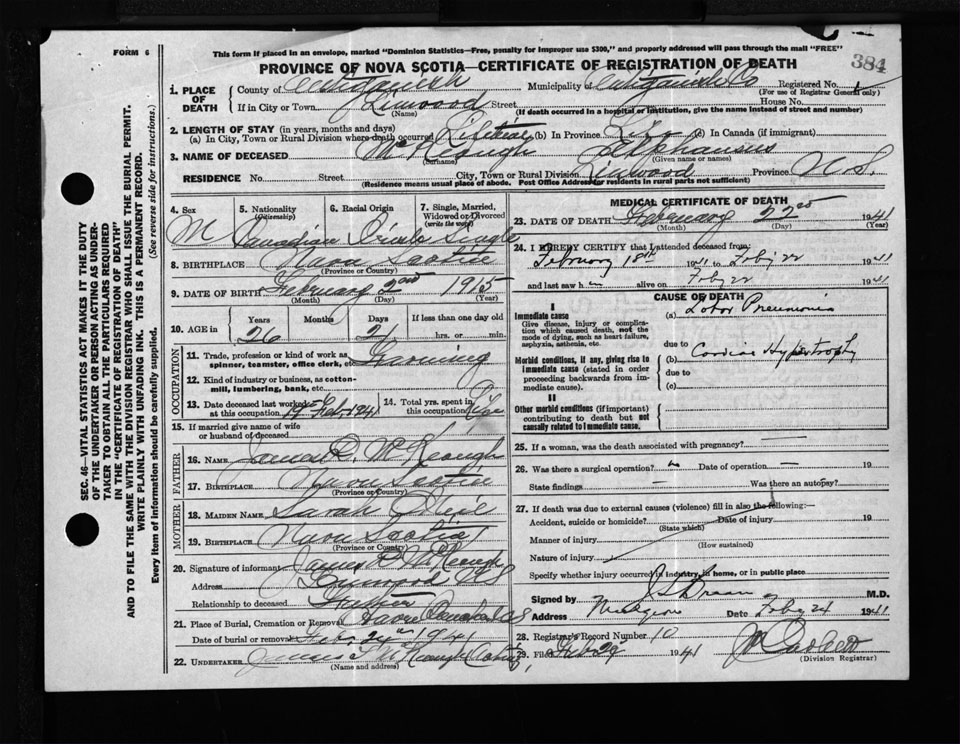 FORM 6
This form if placed in an envelope, marked "Dominion Statistics—Free, penalty for improper use $300," and properly addressed will pass through the mail "FREE"
PROVINCE OF NOVA SCOTIA—CERTIFICATE OF REGISTRATION OF DEATH
384
1. PLACE OF DEATH
County of Antigonish Municipality of Antigonish Co Registered No.
(For use of Registrar General only)
If in City or Town Linwood Street House No.
(Name) (If death occurred in a hospital or institution, give the name instead of street and number)
2. LENGTH OF STAY (in years, months and days)
(a) In City, Town or Rural Division where death occurred Lifetime (b) In Province Life (c) In Canada (if immigrant)
3. NAME OF DECEASED McKeough Alphonsus
(Surname) (Given name or names)
RESIDENCE No. Street City, Town or Rural Division Linwood Province N.S.
(Residence means usual place of abode. Post Office Address for residents in rural parts not sufficient)
4. Sex M
5. Nationality (Citizenship) Canadian
6. Racial Origin
7. Single, Married, Widowed or Divorced (write the word) Single
8. BIRTHPLACE Nova Scotia
(Province or Country)
9. DATE OF BIRTH February 2nd 1915
(Month) (Day) (Year)
10. AGE in Years 26 Months Days 21 If less than one day old hrs. or min.
OCCUPATION
11. Trade, profession or kind of work as spinner, teamster, office clerk, etc. Farming
12. Kind of industry or business, as cotton-mill, lumbering, bank, etc.
13. Date deceased last worked at this occupation Feb 1941
14. Total yrs. spent in this occupation
15. If married give name of wife or husband of deceased
FATHER
16. Name James D. McKeough
17. Birthplace Nova Scotia
(Province or Country)
MOTHER
18. Maiden Name Sarah
19. Birthplace Nova Scotia
(Province or Country)
20. Signature of informant James D McKeough
Address Linwood N.S
Relationship to deceased Father
21. Place of Burial, Cremation or Removal Havre Boucher N.S
Date of burial or removal Feb. 24th 1941
22. UNDERTAKER McKeough
(Name and address)
MEDICAL CERTIFICATE OF DEATH
23. DATE OF DEATH February 22nd 1941
(Month) (Day) (Year)
24. I HEREBY CERTIFY that I attended deceased from:
February 18th 1941 to Feby 22 1941
and last saw h m alive on Feby 22 1941
CAUSE OF DEATH
I
Immediate cause
Give disease, injury or complication which caused death, not the mode of dying, such as heart failure, asphyxia, asthenia, etc.
(a) Lobar Pneumonia
due to
Morbid conditions, if any, giving rise to immediate cause (stated in order proceeding backwards from immediate cause).
(b) Cardiac Hypertrophy
due to
(c)
II
Other morbid conditions (if important) contributing to death but not causally related to immediate cause.
25. If a woman, was the death associated with pregnancy? —
26. Was there a surgical operation? no Date of operation — 19
State findings — Was there an autopsy?
27. If death was due to external causes (violence) fill in also the following:—
Accident, suicide or homicide? Date of injury 19
(State which)
Manner of injury
(How sustained)
Nature of injury
Specify whether injury occurred in industry, in home, or in public place
Signed by M.D.
Address Mulgrave Date Feby 24 1941
28. Registrar's Record Number 10
29. Filed Feb 1941
(Division Registrar)
SEC. 46—VITAL STATISTICS ACT MAKES IT THE DUTY
OF THE UNDERTAKER OR PERSON ACTING AS UNDER-
TAKER TO OBTAIN ALL THE PARTICULARS REQUIRED
IN THE "CERTIFICATE OF REGISTRATION OF DEATH"
AND TO FILE THE SAME WITH THE DIVISION REGISTRAR WHO SHALL ISSUE THE BURIAL PERMIT.
WRITE PLAINLY WITH UNFADING INK. THIS IS A PERMANENT RECORD.
Every item of information should be carefully supplied. (See reverse side for instructions.)